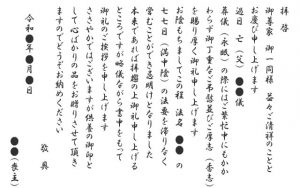 拝啓
御尊家 御一同様 益々ご清祥のことと
お慶び申し上げます
過日 亡(父) ●●儀
葬儀(永眠)の際にはご繁忙中にもかか
わらず御丁重なご弔慰並びご厚志(香志)
を賜り厚く御礼申し上げます
お陰をもちましてこの程 法名 ●●の
七七日(満中陰)の法要を滞りなく
営むことができ忌明けとなりました
本来であれば拝趨の上御礼申し上げる
ところですが略儀ながら書中をもって
御礼のご挨拶を申し上げます
ささやかではございますが供養の御印と
して心ばかりの品をお贈りさせて頂き
ますのでどうぞお納めください
敬具
令和●年●月●日
●●(喪主)